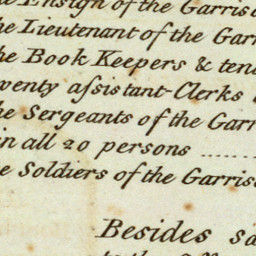 Ensign of the Garris
he Lieutenant of the Garr
he Book Keepers & ten
wenty aſsistant-Clerks
he Sergeants of the Garr
in all 20 persons ......
e Soldiers of the Garris
Besides sa